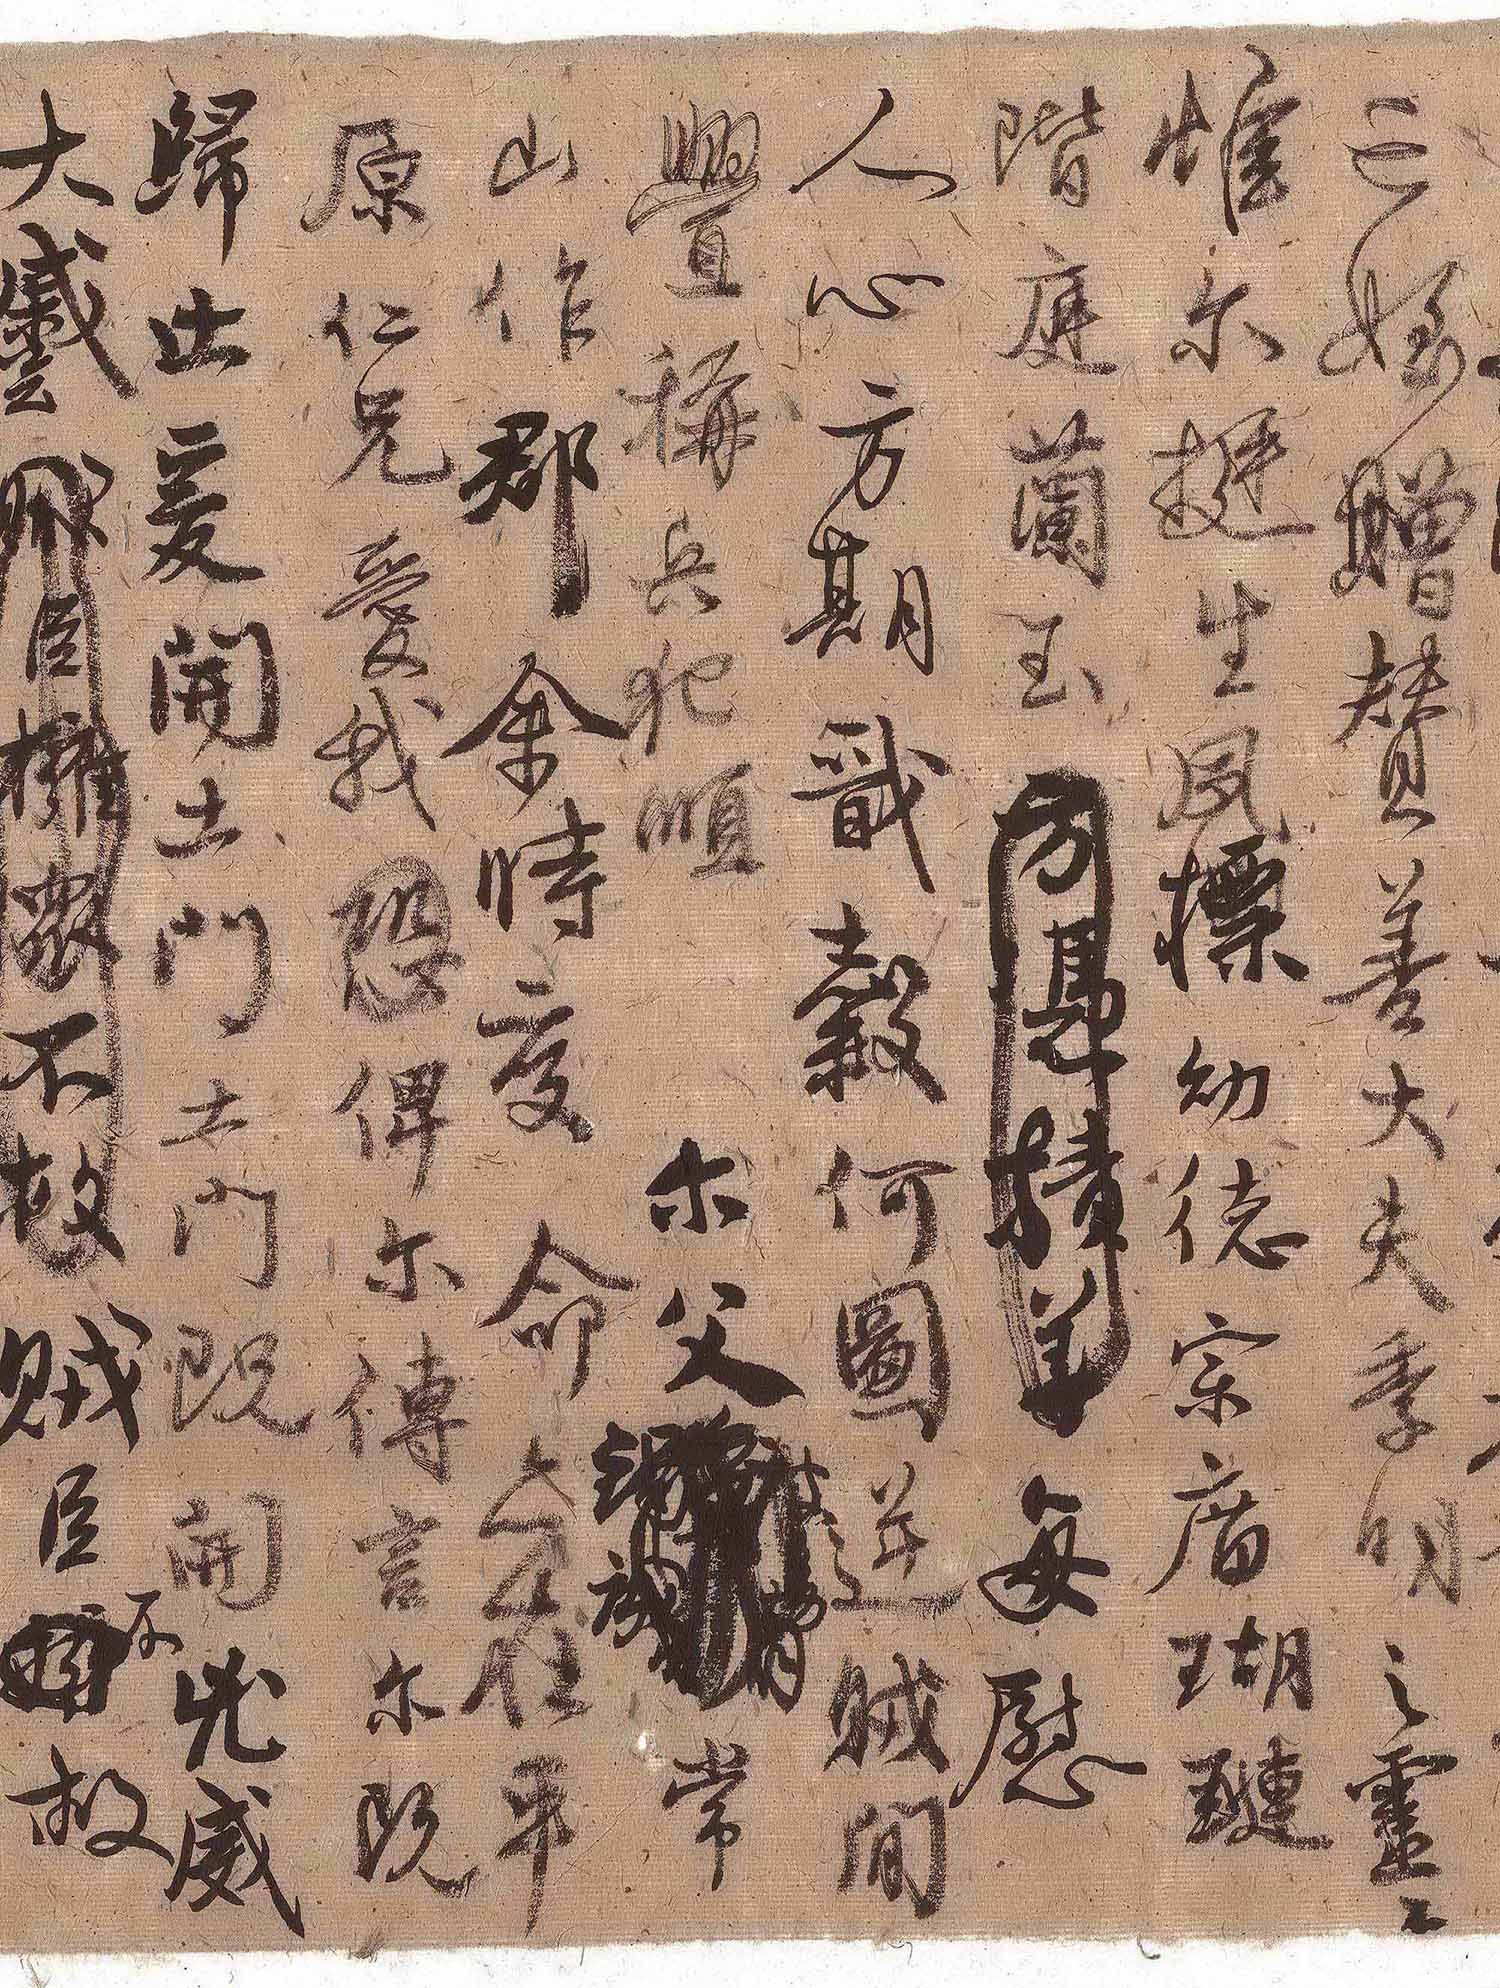 亡姪贈贊善大夫季明之靈曰
惟尔挺生夙標幼德宗廟瑚璉
階庭蘭玉方憑積善每慰
人心方期戩穀何圖逆賊間
釁稱兵犯順尔父竭誠常
山作郡余時受命亦在平
原仁兄愛我恐俾尔傳言尔既
歸止爰開土門土門既開凶威
大蹙賊臣擁衆不救賊臣不救